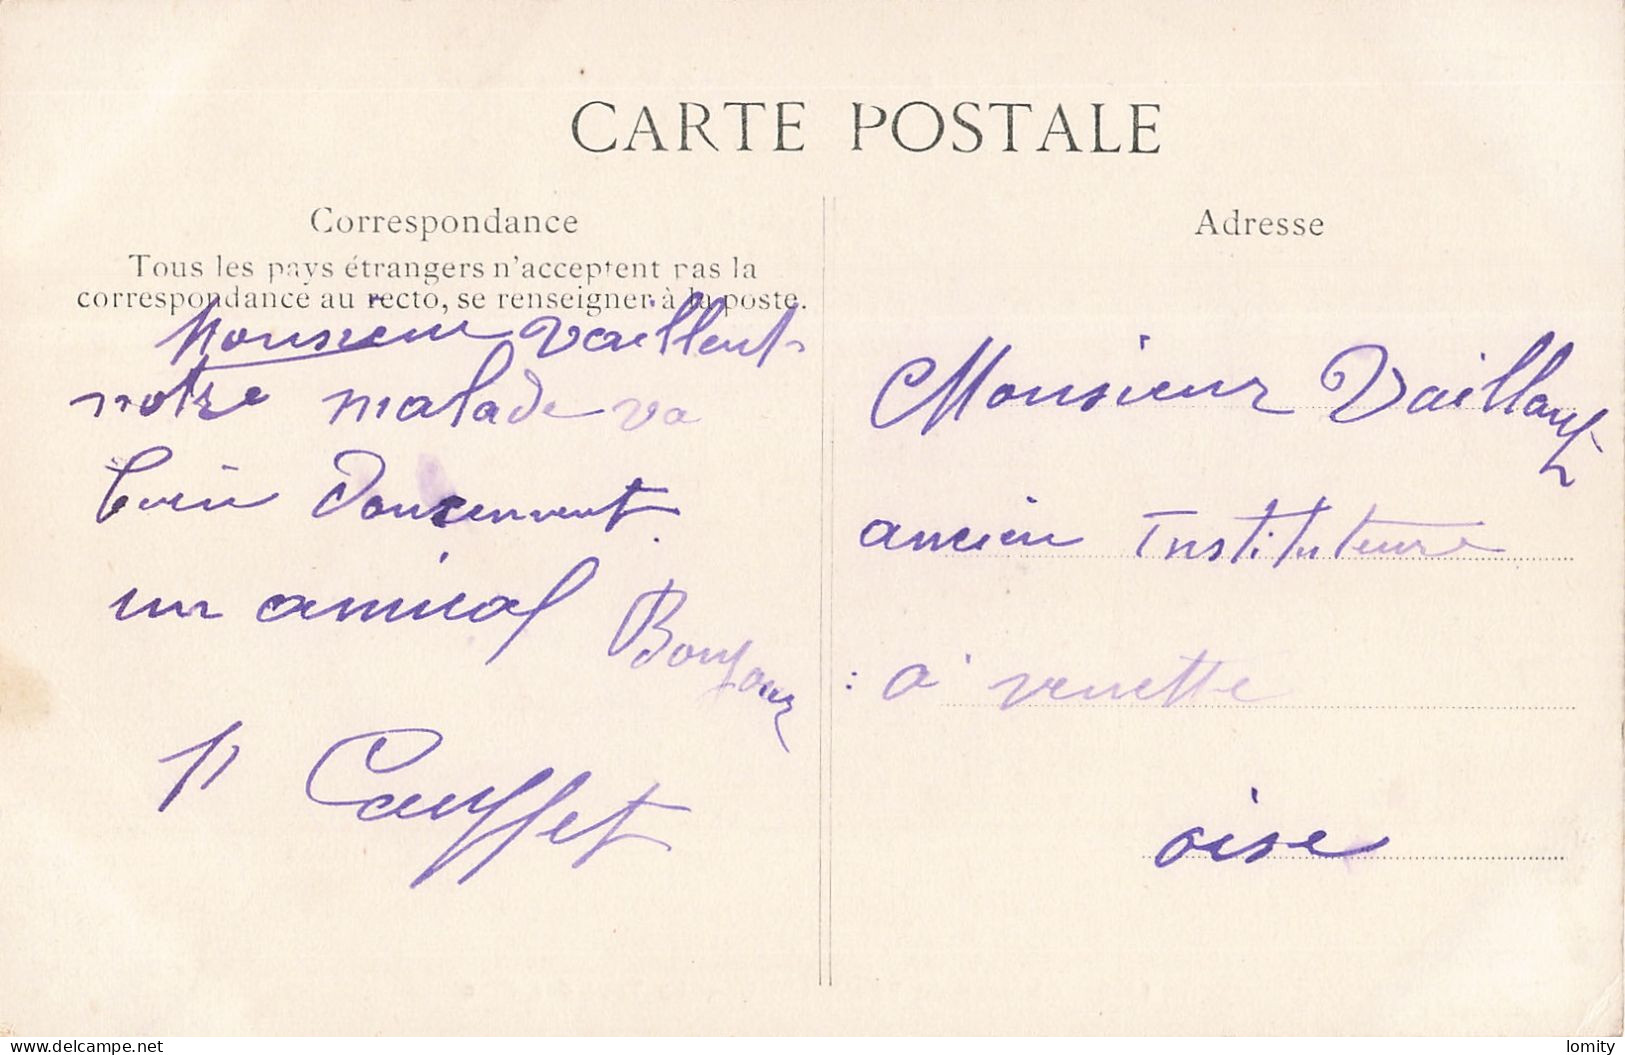 CARTE POSTALE
Correspondance
Tous les pays étrangers n'acceptent pas la
correspondance au recto, se renseigner à la poste.
Monsieur Vaillent
notre malade va
bien Doucement.
un amical Bonjour
Cauffet
Adresse
Monsieur Vaillant
ancien Instituteure
à venette
oise
www.delcampe.net
lomity